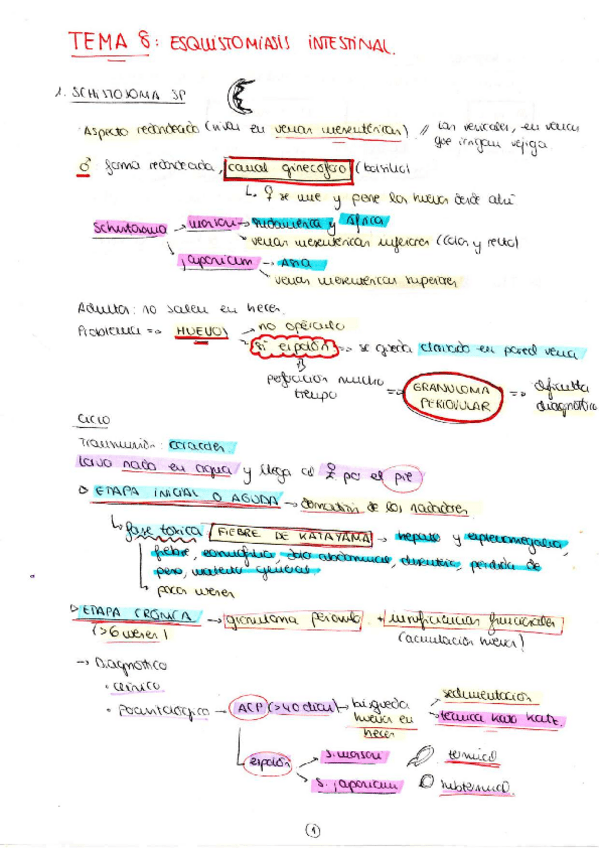 TEMA 8: ESQUISTOMIASIS INTESTINAL.
1. SCHISTOSOMA SP
Aspecto redondeado (vivas en venas mesentéricas) // Las vesicales, en venas que irrigan vejiga
♂ forma redondeada, canal ginecóforo (bolsillo)
↳ ♀ se une y pone los huevos desde ahí
Schistosoma → mansoni → Sudamérica y África
→ venas mesentéricas inferiores (colon y recto)
→ japonicum → Asia
→ venas mesentéricas superiores
Adultos: no salen en heces.
Problema => HUEVO → no opérculo
→ sí espolón => se queda clavado en pared vena
perforación mucho tiempo => GRANULOMA PERIOVULAR => dificulta diagnóstico
Ciclo
Transmisión: caracoles
Larva nada en agua y llega al por el pie
ETAPA INICIAL O AGUDA → dermatitis de los nadadores
↳ fase tóxica FIEBRE DE KATAYAMA → hepato y esplenomegalia,
fiebre, eosinofilia, dolor abdominal, disentería, pérdida de
peso, malestar general
pocas
ETAPA CRÓNICA → granuloma + insuficiencias funcionales
(>6 meses) (acumulación huevos)
→ Diagnóstico
· clínico
· parasitológico → ACP (>40 días) → búsqueda huevos en heces → sedimentación
→ técnica Kato Katz.
espolón → S. mansoni terminal
→ S. japonicum subterminal
1